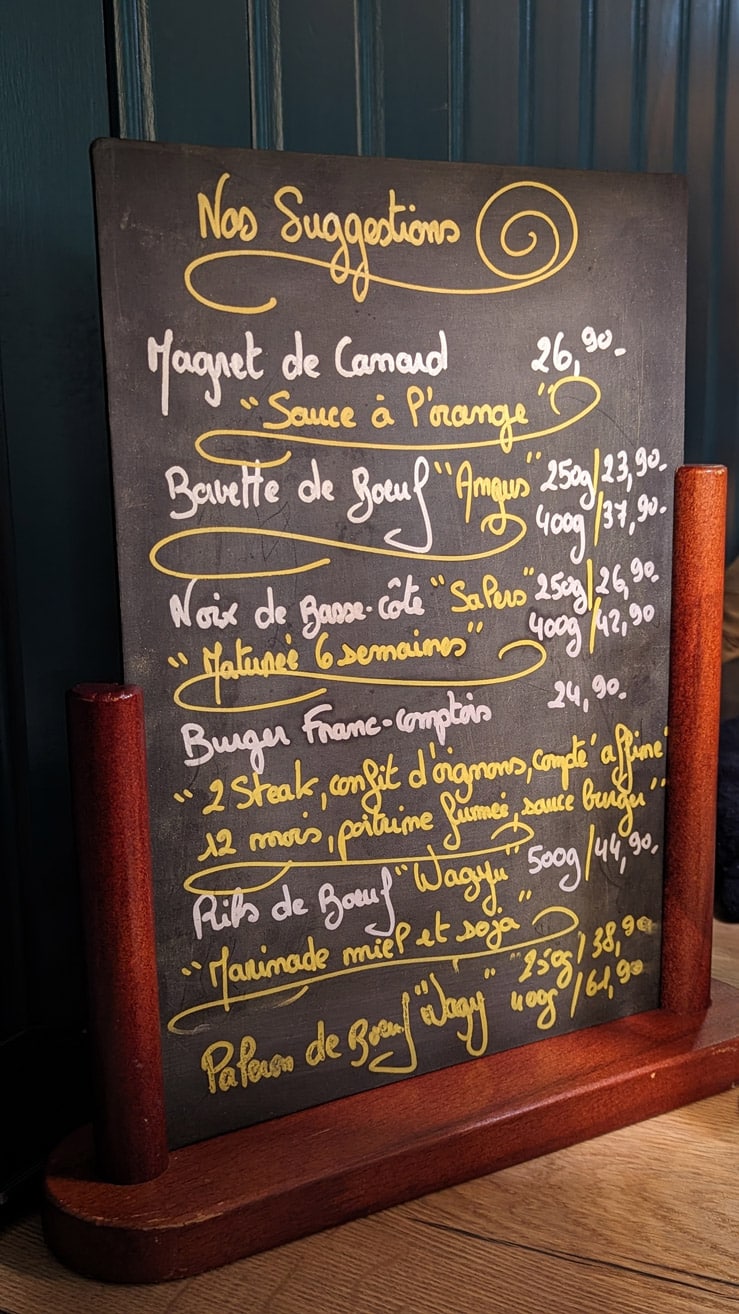 Nos Suggestions
Magret de Canard 26,90.-
"Sauce à l'orange"
Bavette de Boeuf "Angus" 250g/23,90.-
400g/37,90.-
Noix de Basse-côte "Salers" 250g/26,90.-
400g/42,90
"Maturée 6 semaines"
Burger Franc-comptois 24,90.-
"2 Steak, confit d'oignons, compté affiné
12 mois, poitrine fumée, sauce burger"
Ribs de Boeuf "Wagyu" 500g/44,90.-
"Marinade miel et soja"
250g/38,90
Paleron de Boeuf "Wagy" 400g/61,90